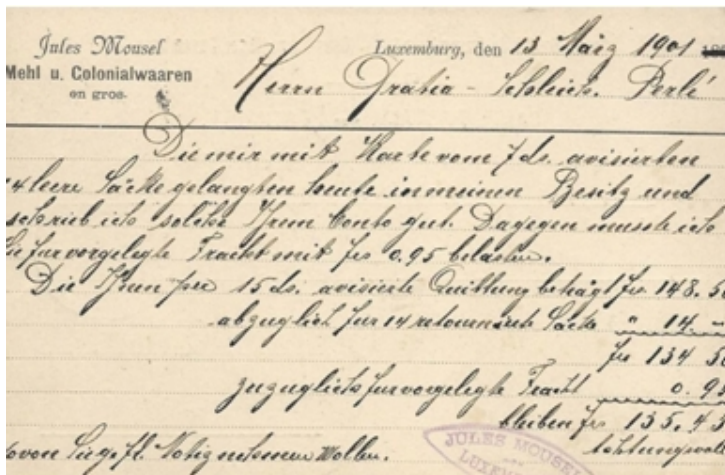 Jules Mousel
Mehl u. Colonialwaaren
en gros.
Luxemburg, den 13 März 1901
Herrn Dratia - Schleich. Perlé
Die mir mit Karte vom 7 ds. avisierten
14 leere Säcke gelangten heute in meinen Besitz und
schrieb ich solche Ihrem Conto gut. Dagegen musste ich
Sie für vorgelegte Fracht mit frs 0.95 belasten.
Die Ihnen per 15 ds. avisierte Quittung beträgt frs 148.50
abzüglich für 14 retournierte Säcke " 14. -
frs 134 50
zuzüglich für vorgelegte Fracht 0.95
bleiben frs 135.45
wovon Sie gefl. Notiz nehmen wollen.
Achtungsvoll
JULES MOUSEL
LUXEM